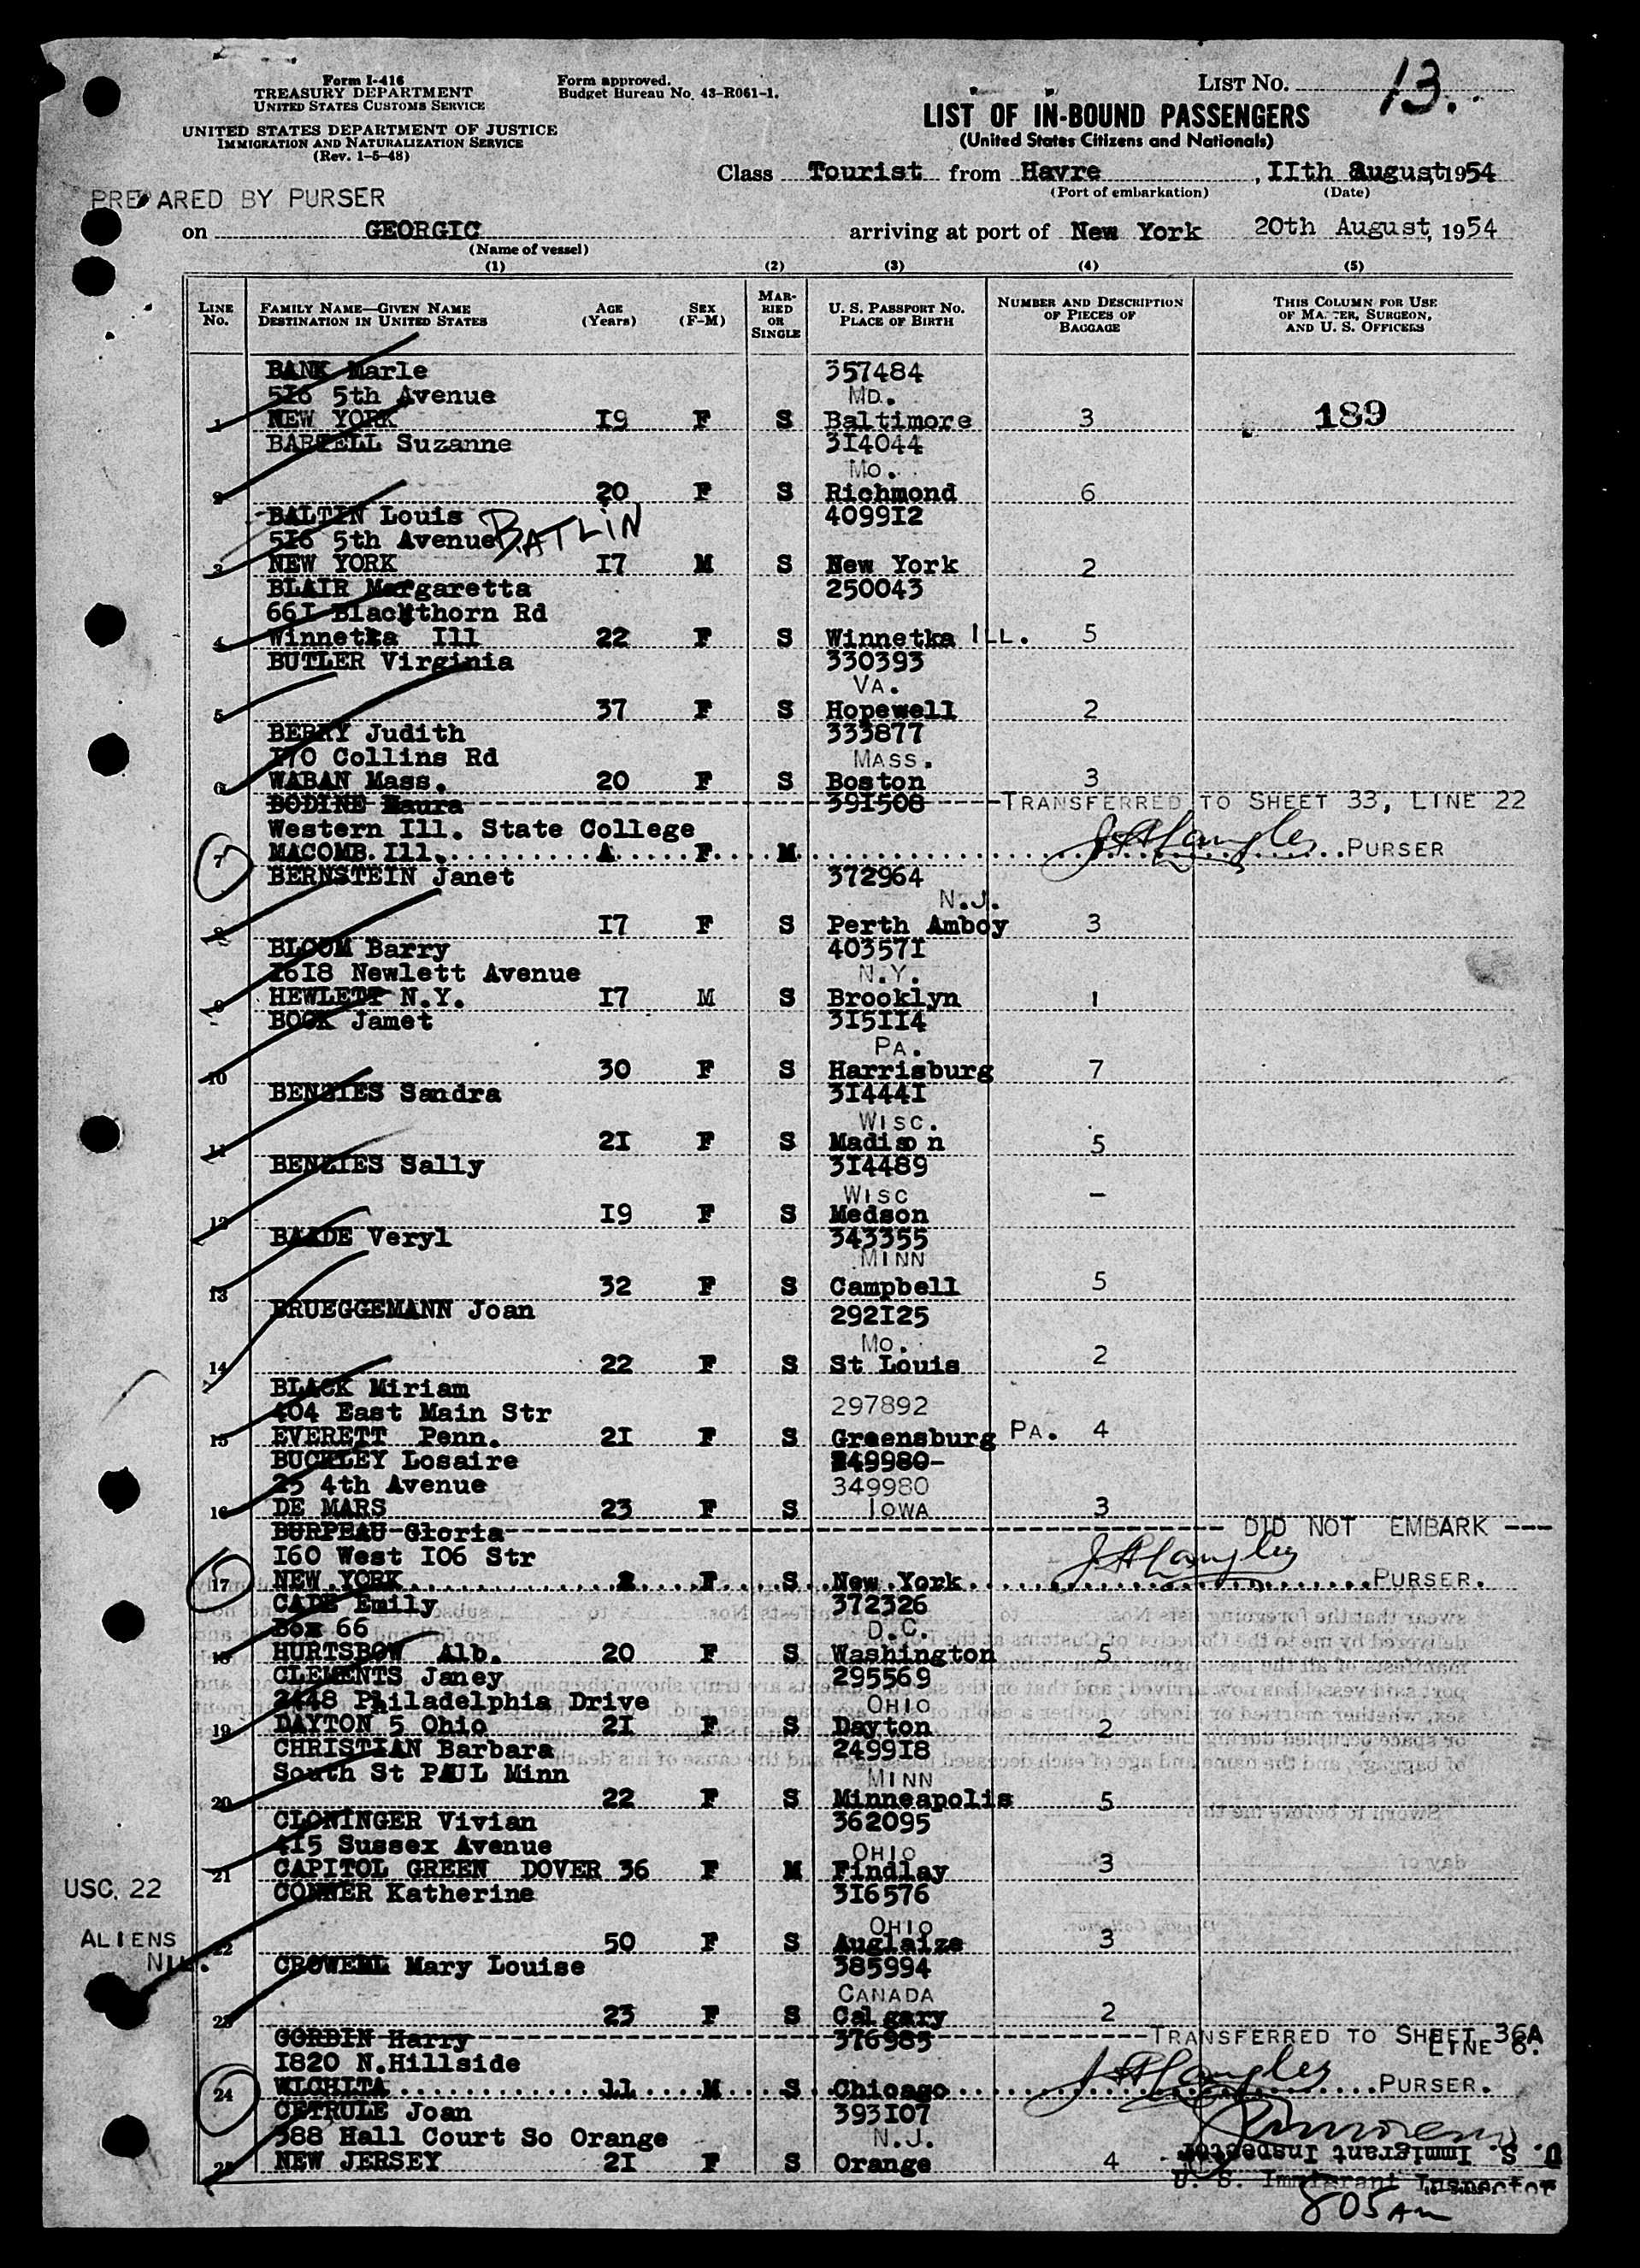 Form I-416
TREASURY DEPARTMENT
UNITED STATES CUSTOMS SERVICE
UNITED STATES DEPARTMENT OF JUSTICE
IMMIGRATION AND NATURALIZATION SERVICE
(Rev. 1-5-48)
Form approved.
Budget Bureau No. 43-R061-1.
LIST No. 13.
LIST OF IN-BOUND PASSENGERS
(United States Citizens and Nationals)
Class Tourist from Havre, IIth August, 1954
(Port of embarkation) (Date)
PREPARED BY PURSER
on GEORGIC arriving at port of New York 20th August, 1954
(Name of vessel)
(1) (2) (3) (4) (5)
LINE No. FAMILY NAME—GIVEN NAME DESTINATION IN UNITED STATES AGE (Years) SEX (F-M) MARRIED OR SINGLE U. S. PASSPORT No. PLACE OF BIRTH NUMBER AND DESCRIPTION OF PIECES OF BAGGAGE THIS COLUMN FOR USE OF MASTER, SURGEON, AND U. S. OFFICERS
BANK Marle 357484
5I6 5th Avenue MD.
1 NEW YORK I9 F S Baltimore 3 189
BARTELL Suzanne 3I4044
MO.
2 20 F S Richmond 6
BALTIN Louis BATLIN 4099I2
5I6 5th Avenue
3 NEW YORK I7 M S New York 2
BLAIR Margaretta 250043
66I Blackthorn Rd
4 Winnetka Ill 22 F S Winnetka ILL. 5
BUTLER Virginia 330393
VA.
5 37 F S Hopewell 2
BERRY Judith 333877
I70 Collins Rd MASS.
6 WABAN Mass. 20 F S Boston 3
BODINE Maura 39I508 TRANSFERRED TO SHEET 33, LINE 22
Western Ill. State College
7 MACOMB. Ill. A F M PURSER
BERNSTEIN Janet 372964
N.J.
8 I7 F S Perth Amboy 3
BLOOM Barry 40357I
I6I8 Newlett Avenue N.Y.
9 HEWLETT N.Y. I7 M S Brooklyn 1
BOOK Jamet 3I5II4
PA.
10 30 F S Harrisburg 7
BENZIES Sandra 3I444I
WISC.
11 2I F S Madison 5
BENZIES Sally 3I4489
WISC
12 I9 F S Medson –
BAADE Veryl 343355
MINN
13 32 F S Campbell 5
BRUEGGEMANN Joan 292I25
MO.
14 22 F S St Louis 2
BLACK Miriam
404 East Main Str 297892
15 EVERETT Penn. 2I F S Greensburg PA. 4
BUCKLEY Losaire 249980-
25 4th Avenue 349980
16 DE MARS 23 F S IOWA 3
BURPEAU Gloria DID NOT EMBARK
I60 West I06 Str
17 NEW YORK F S New York PURSER.
CADE Emily 372326
Box 66 D.C.
18 HURTSBOW Alb. 20 F S Washington 5
CLEMENTS Janey 295569
2448 Philadelphia Drive OHIO
19 DAYTON 5 Ohio 2I F S Dayton 2
CHRISTIAN Barbara 2499I8
South St PAUL Minn MINN
20 22 F S Minneapolis 5
CLONINGER Vivian 362095
4I5 Sussex Avenue OHIO
21 CAPITOL GREEN DOVER 36 F M Findlay 3
USC. 22
CONNER Katherine 3I6576
ALIENS NIL. OHIO
22 50 F S Auglaize 3
CROWELL Mary Louise 385994
CANADA
23 23 F S Calgary 2
CORBIN Harry 376985 TRANSFERRED TO SHEET 36A LINE 6.
I820 N.Hillside
24 WICHITA 11 M S Chicago PURSER.
CETRULE Joan 393I07
388 Hall Court So Orange N.J.
25 NEW JERSEY 2I F S Orange 4
U. S. Immigrant Inspector
U. S. Immigrant Inspector
805 AM